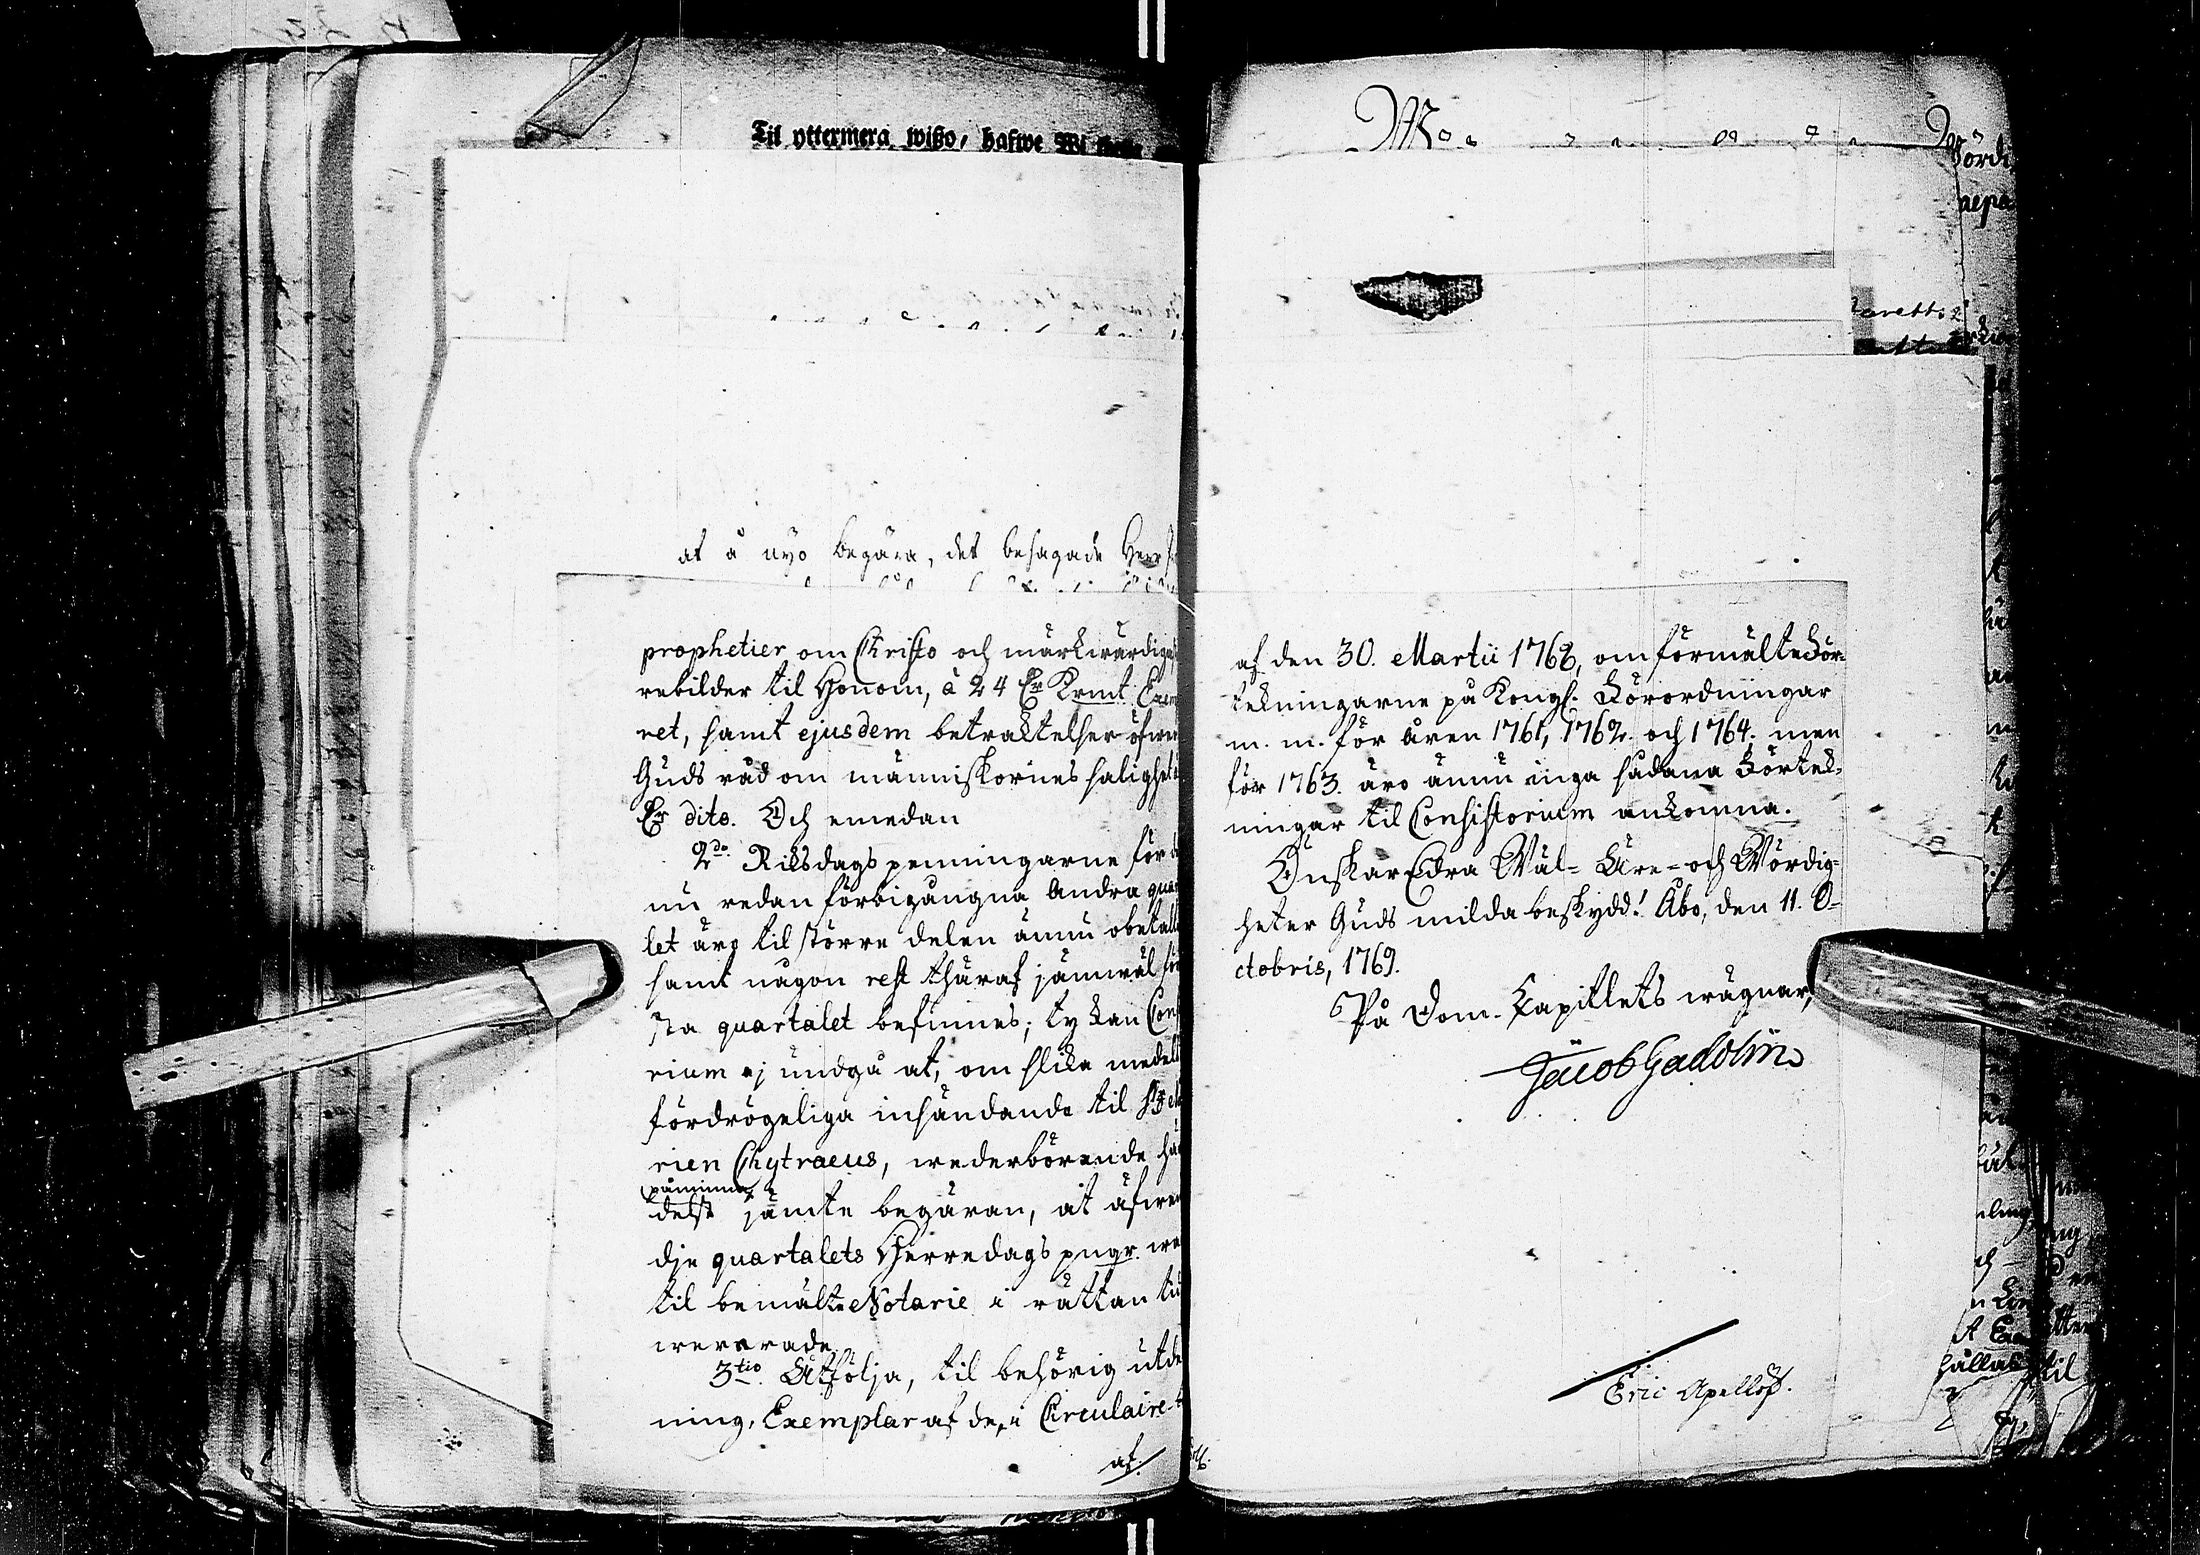 Til yttermera wißo, hafwe Wi
at å nyo begära, det besagade Herr
prophetier om Christo och märkwärdiga
rebilder til Honom, à 24 Er Krmt Exem
ret, samt ejusdem betraktelser öfwer
Guds råd om människornes salighet
Er dito. Och emedan
2do. Riksdagspenningarne för d
nu redan förbigångna Andra quar
let äro til större delen ännu obetalte
samt någon rest theraf jämwäl för
sta quartalet befinnes; ty kan Cons
rium ej undgå at, om slike medels
fördrögeliga insändande til Nota
rien Chytraeus, wederbörande hä
påminna,
delst jämte begäran, at äfwen
dje quartalets Herredags pngr. we
til bemälte Notarie i rättan ti
wererade.
3tio. Åtfölja, til behörig utde
ning, Exemplar af de, i Circulairet
af.
af den 30. Martii 1768, om förmälte För-
tekningarne på Kongl. Förordningar
m. m. för åren 1761, 1762. och 1764. men
för 1763. äro ännu inga sådana Förtek-
ningar til Consistorium ankomna.
Önskar Edra Wäl- Äre- och Wördig-
heter Guds milda beskydd! Åbo, den 11. O-
ctobris, 1769.
På Dom-Capitlets wägnar,
Jacob Gadolin
Eric Apelloff.